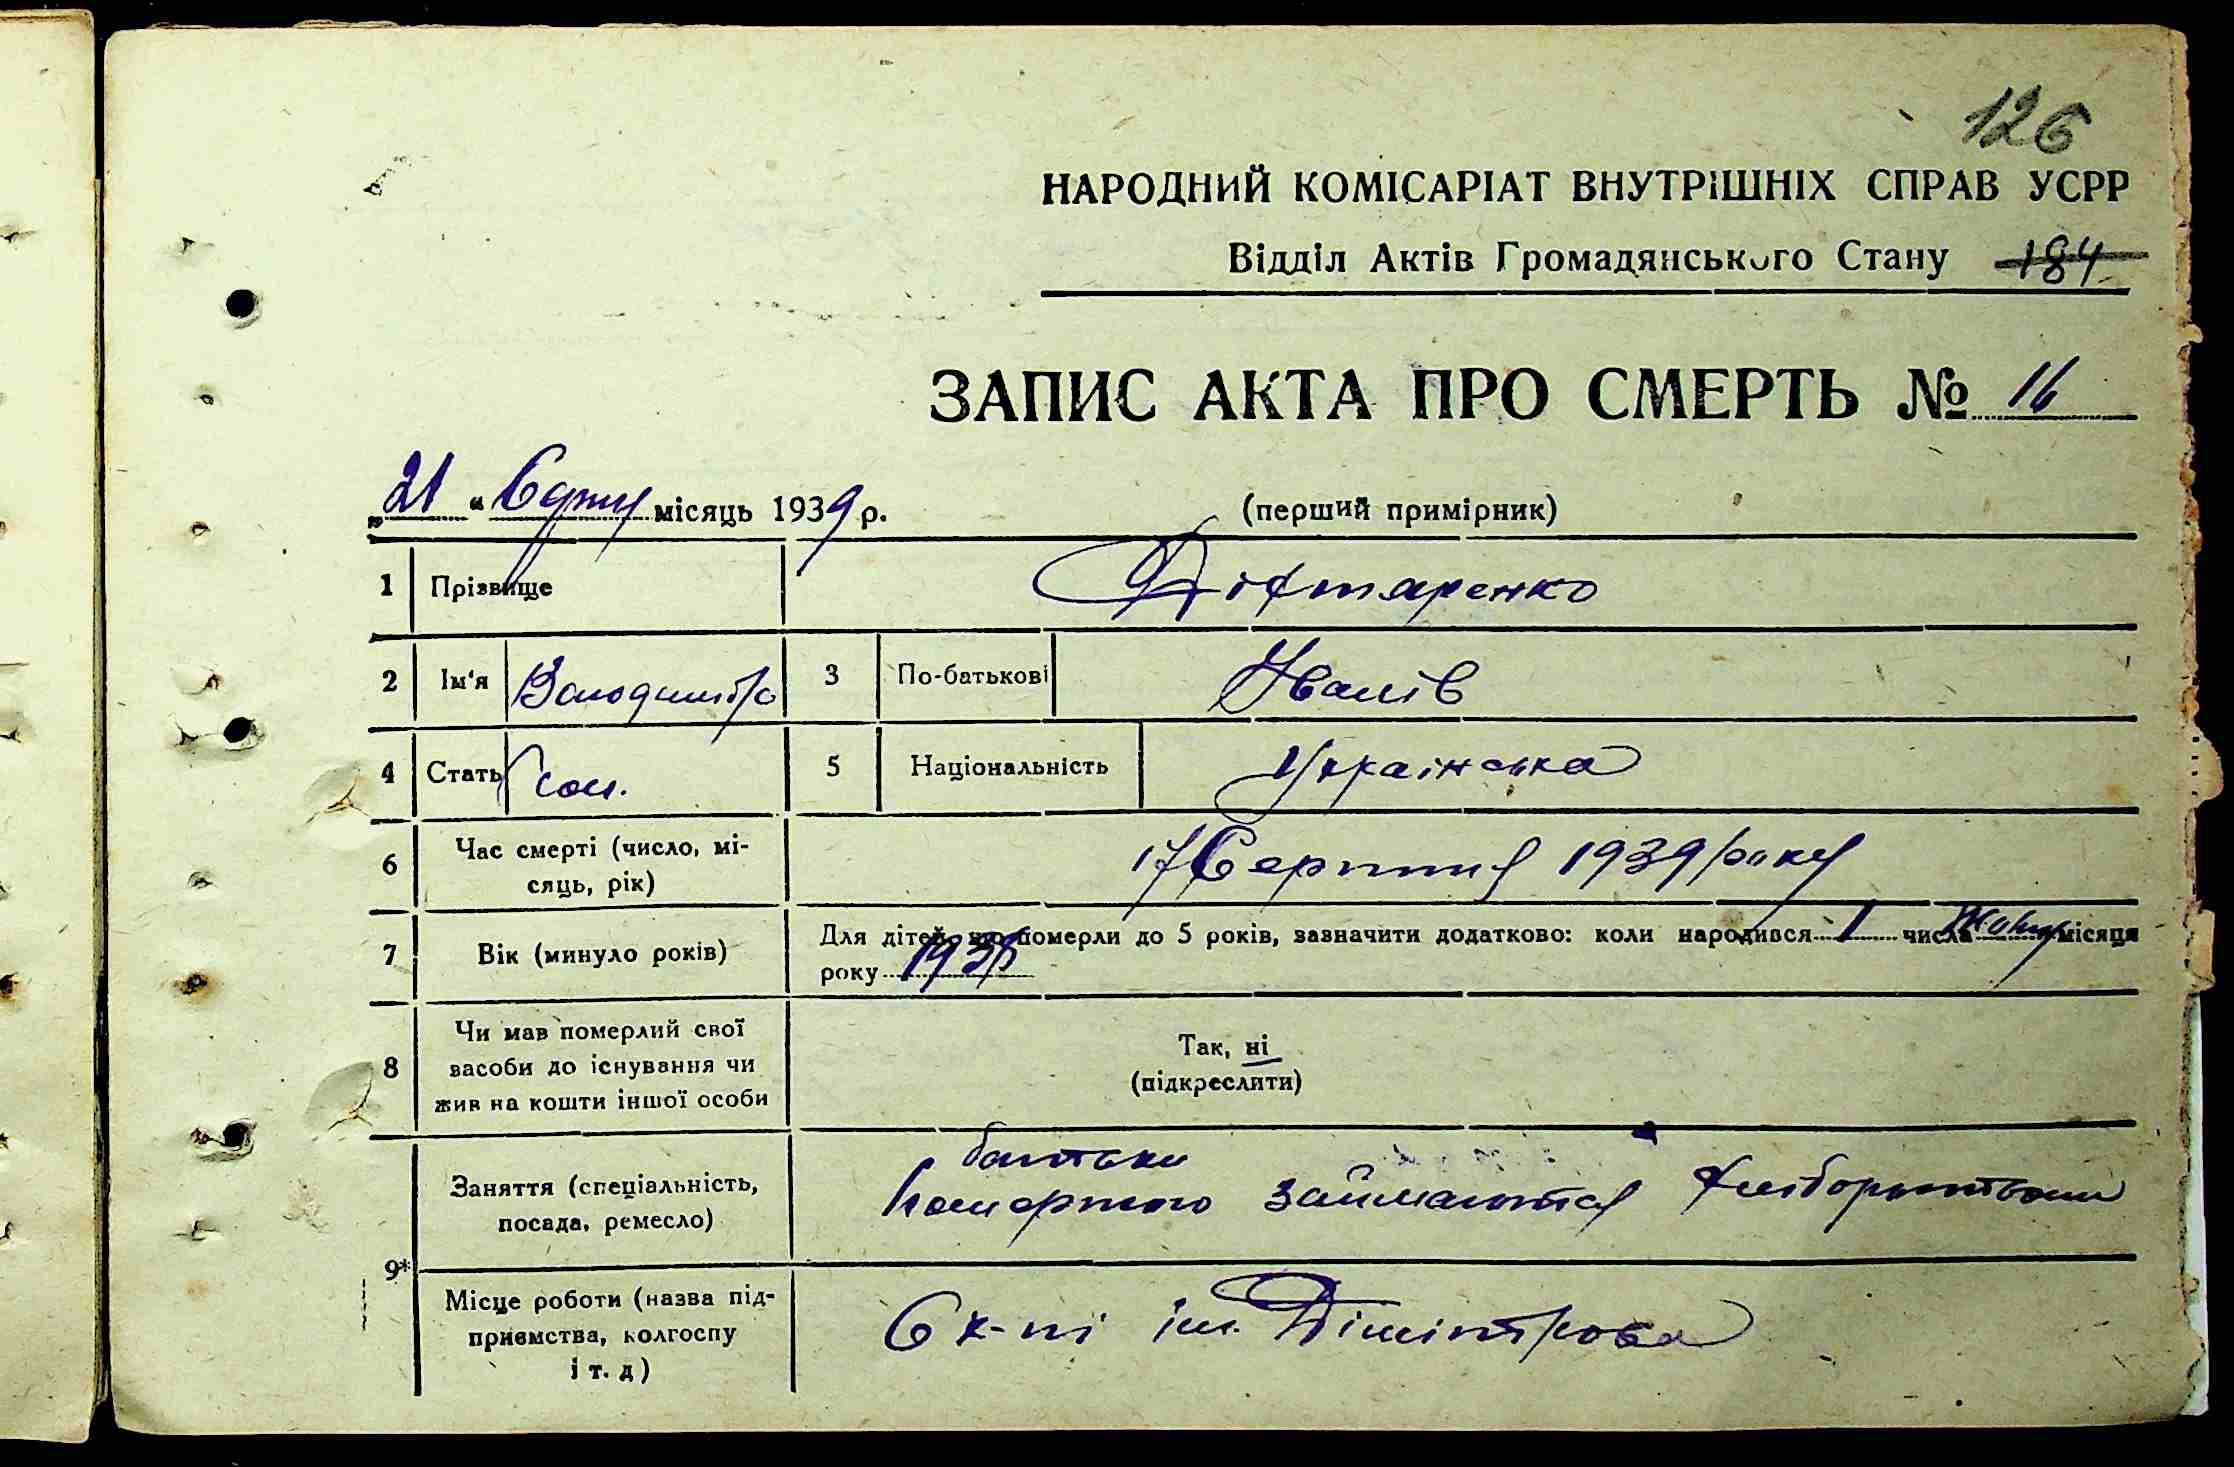 126
НАРОДНИЙ КОМІСАРІАТ ВНУТРІШНІХ СПРАВ УСРР
Відділ Актів Громадянського Стану 184
ЗАПИС АКТА ПРО СМЕРТЬ № 16
„21 “ місяць 1939 р. (перший примірник)
1 Прізвище Діхтяренко
2 Ім'я Володимір 3 По-батькові Іванів
4 Стать чол. 5 Національність Українська
6 Час смерті (число, мі-
сяць, рік) 17 Серпня 1939 року
7 Вік (минуло років) Для дітей, що померли до 5 років, зазначити додатково: коли народився 1 числа Жовтня місяця
року 1938
8 Чи мав померлий свої
засоби до існування чи
жив на кошти іншої особи
Так, ні
(підкреслити)
9* Заняття (спеціальність,
посада, ремесло)
батьки
помершого займаются хліборобством
Місце роботи (назва під-
приємства, колгоспу
і т. д)
С к-пі ім. Дімітрова